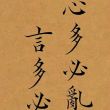 心多必亂
言多必